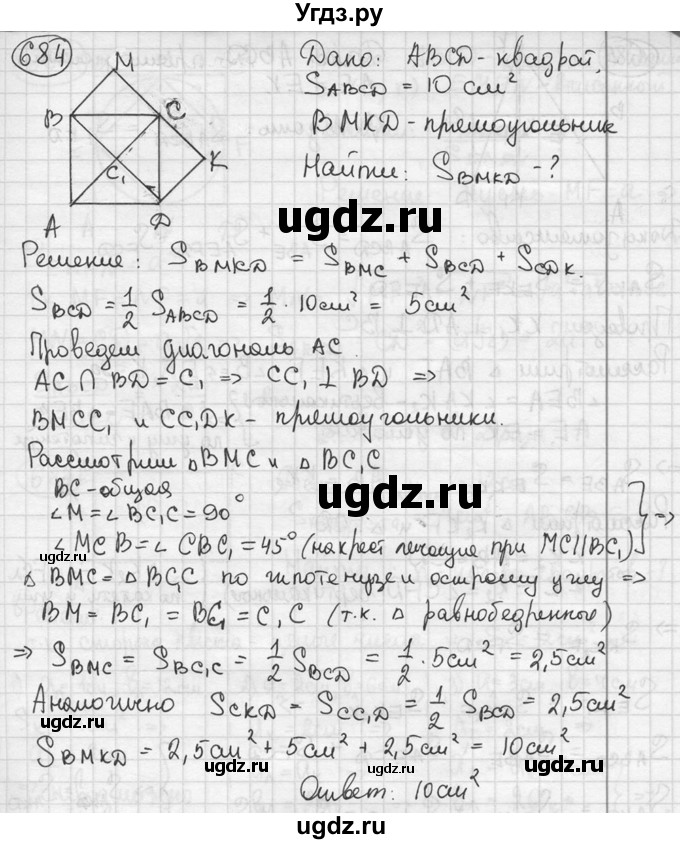 Угдз.ру
684
M
B
C
K
C₁
A
D
Дано: ABCD - квадрат,
S_ABCD = 10 см²
BMKD - прямоугольник
Найти: S_BMKD - ?
ugdz.ru
Решение: S_BMKD = S_BMC + S_BCD + S_CDK.
S_BCD = 1/2 S_ABCD = 1/2 · 10см² = 5см²
Проведем диагональ AC.
AC ∩ BD = C₁ => CC₁ ⊥ BD =>
BMCC₁ и CC₁DK - прямоугольники.
Рассмотрим △BMC и △BC₁C
BC - общая
ugdz.ru
∠M = ∠BC₁C = 90°
ugdz.ru
∠MCB = ∠CBC₁ = 45° (накрест лежащие при MC||BC₁) =>
△BMC = △BC₁C по гипотенузе и острому углу =>
BM = BC₁ = BC₁ = C₁C (т.к. △ равнобедренные)
ugdz.ru
ugdz.ru
=> S_BMC = S_BC₁C = 1/2 S_BCD = 1/2 · 5см² = 2,5см²
Аналогично S_CKD = S_CC₁D = 1/2 S_BCD = 2,5см²
ugdz.ru
S_BMKD = 2,5см² + 5см² + 2,5см² = 10см²
ugdz.ru
ugdz.ru
Ответ: 10см²
ugdz.ru